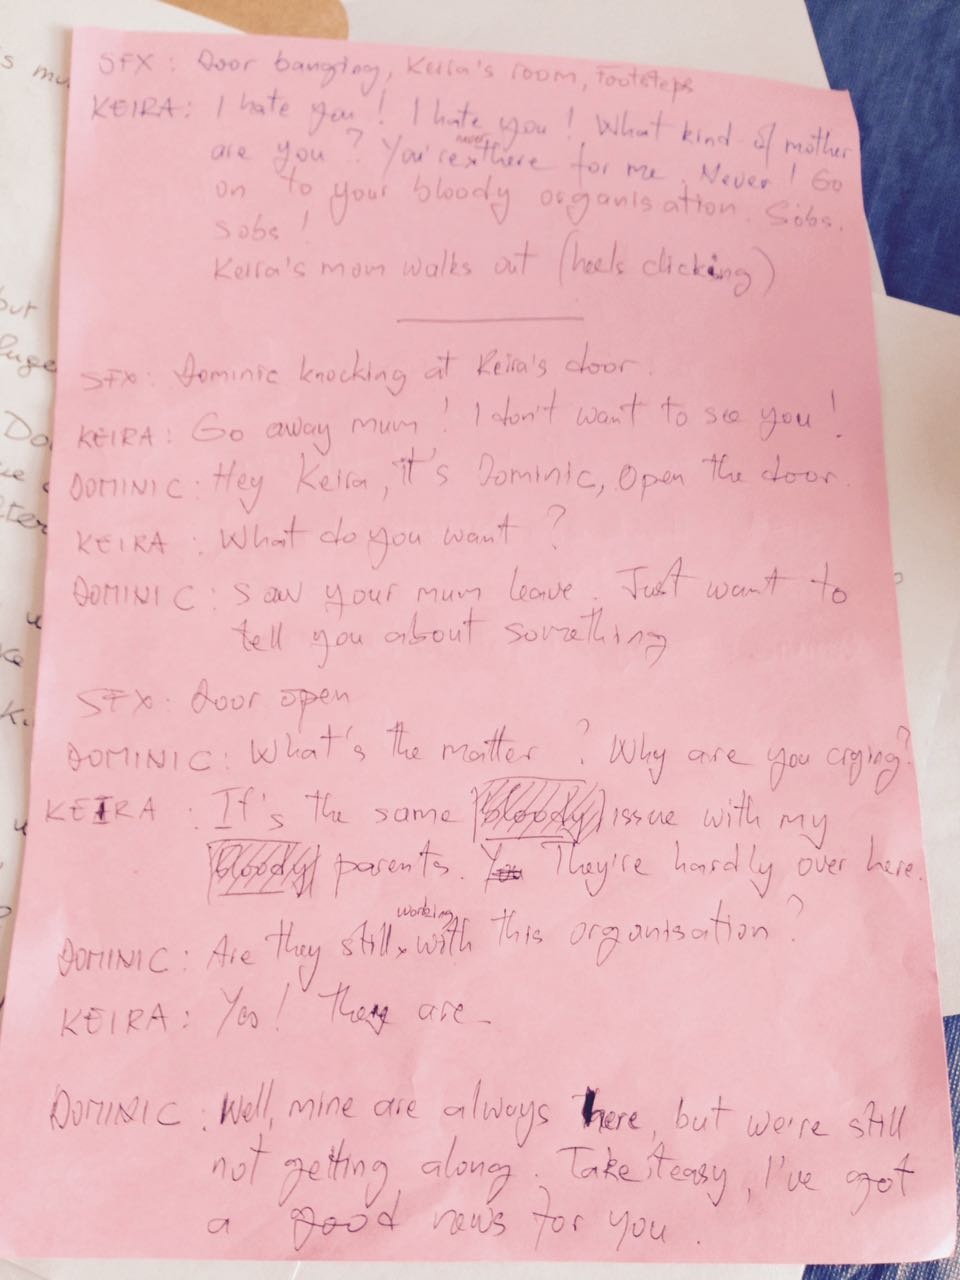 SFX: Door banging, Keira's room, Footsteps
KEIRA: I hate you! I hate you! What kind of mother
are you? You're never there for me. Never! Go
on to your bloody organisation. Sobs.
Sobs!
Keira's mom walks out (heels clicking)
SFX: Dominic knocking at Keira's door.
KEIRA: Go away mum! I don't want to see you!
DOMINIC: Hey Keira, it's Dominic, Open the door.
KEIRA: What do you want?
DOMINIC: Saw your mum leave. Just want to
tell you about something
SFX: Door open
DOMINIC: What's the matter? Why are you crying?
KEIRA: It's the same bloody issue with my
bloody parents. They're hardly over here.
DOMINIC: Are they still working with this organisation?
KEIRA: Yes! they are
DOMINIC: Well, mine are always here, but we're still
not getting along. Take iteasy, I've got
a good news for you.